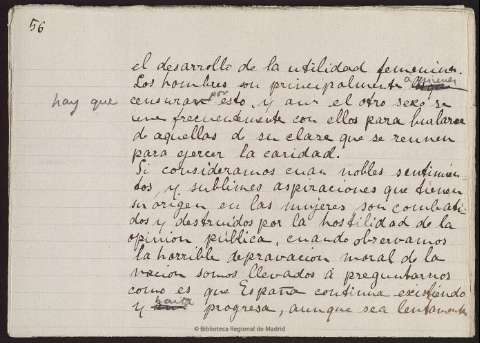 56
el desarrollo de la utilidad femenina.
Los hombres son principalmente a quienes
hay que censurar por esto, y aun el otro sexo se
une frecuentemente con ellos para burlarse
de aquellas de su clase que se reunen
para ejercer la caridad.
Si consideramos cuan nobles sentimien-
tos, y sublimes aspiraciones que tienen
su origen en las mujeres son combati-
dos y destruidos por la hostilidad de la
opinion pública, cuando observamos
la horrible depravacion moral de la
nacion somos llevados á preguntarnos
como es que España continua existiendo
y hasta progresa, aunque sea lentamente
© Biblioteca Regional de Madrid